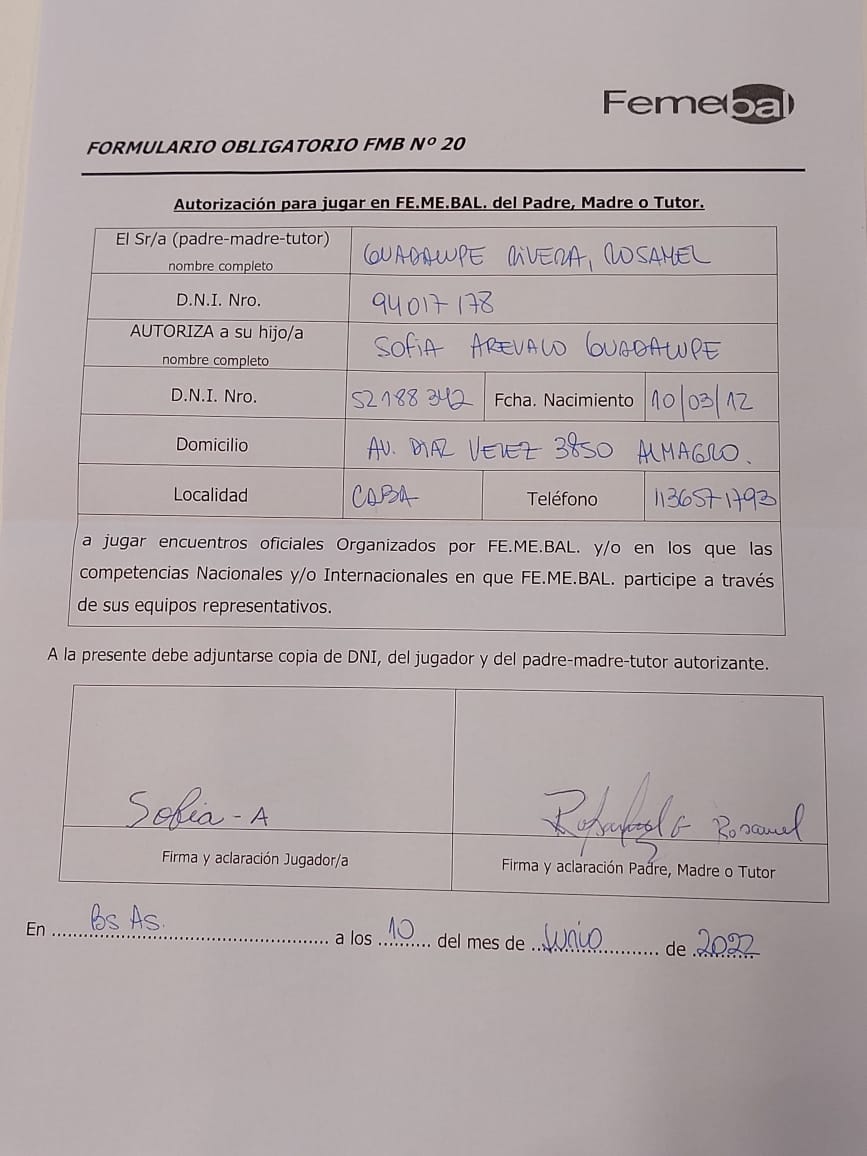 Femebal
FORMULARIO OBLIGATORIO FMB Nº 20
Autorización para jugar en FE.ME.BAL. del Padre, Madre o Tutor.
El Sr/a (padre-madre-tutor) nombre completo GUADALUPE RIVERA, ROSAMEL
D.N.I. Nro. 94017178
AUTORIZA a su hijo/a nombre completo SOFIA AREVALO GUADALUPE
D.N.I. Nro. 52188342 Fcha. Nacimiento 10/03/12
Domicilio AV. DIAZ VELEZ 3850 ALMAGRO.
Localidad CABA Teléfono 1136571793
a jugar encuentros oficiales Organizados por FE.ME.BAL. y/o en los que las
competencias Nacionales y/o Internacionales en que FE.ME.BAL. participe a través
de sus equipos representativos.
A la presente debe adjuntarse copia de DNI, del jugador y del padre-madre-tutor autorizante.
Sofia - A
Rosamel
Firma y aclaración Jugador/a
Firma y aclaración Padre, Madre o Tutor
En Bs As. a los 10 del mes de Junio de 2022